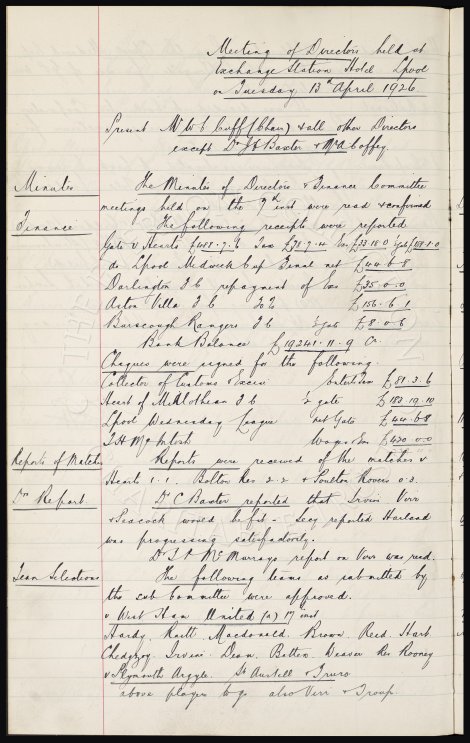 Meeting of Directors held at
Exchange Station Hotel Lpool
on Tuesday 13th April 1926.
Present Mr W C Cuff (Chair) & all other Directors
except Dr J C Baxter & Mr A Coffey.
Minutes
The Minutes of Directors & Finance Committee
meetings held on the 7th inst were read & confirmed
Finance
The following receipts were reported
Gate v Hearts £488.7.6 Tax £78.7.4 £33.18.0
do Lpool Midweek Cup Final net £44.6.8
Darlington F C repayment of loan £35.0.0
Aston Villa F C £156.6.1
Burscough Rangers F C ½ gate £8.0.6
Bank Balance £19,241.11.9 Cr.
Cheques were signed for the following
Collector of Customs & Excise Entert Tax £81.3.6
Heart of Midlothian F C ½ gate £183.19.10
Lpool Wednesday League net Gate £44.6.8
T. H McIntosh Wages £420.0.0
Reports of Matches
Reports were received of the matches v
Hearts 1.1. Bolton Res 2.2 & Poulton Rovers 0.3.
Drs Report
Dr C Baxter reported that Irvine Virr
& Peacock would be fit - Secy reported Hurland
was progressing satisfactorily.
Dr T. P McMurrays report on Virr was read.
Team Selections
The following teams as submitted by
the sub Committee were approved.
v West Ham United (a) 17 inst
Hardy. Raitt. Macdonald. Brown. Reed. Hart
Chedgzoy. Irvine. Dean. Batten. Weaver Res Rooney
v Plymouth Argyle. St Austell & Truro
above players to go also Virr & Troup.